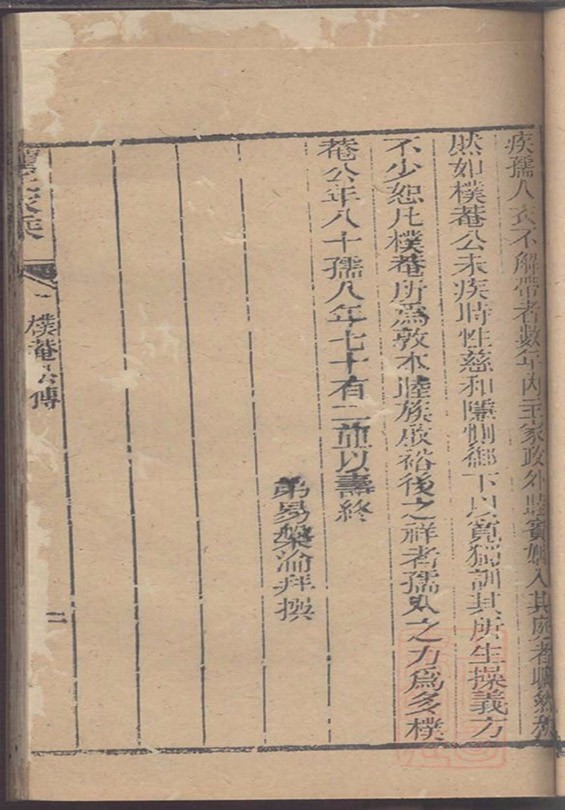 疾孺人衣不解帶者數年內主家政外豐賓姻入其庭者肅然穆
然如樸菴公未疾時性慈和隱惻鄉下以寬獨訓其所生操義方
不少恕凡樸菴所爲敦本睦族啟裕後之祥者孺人之力爲多樸
菴公年八十孺人年七十有二並以壽終
弟易榮渝拜撰
樸菴公傳
二